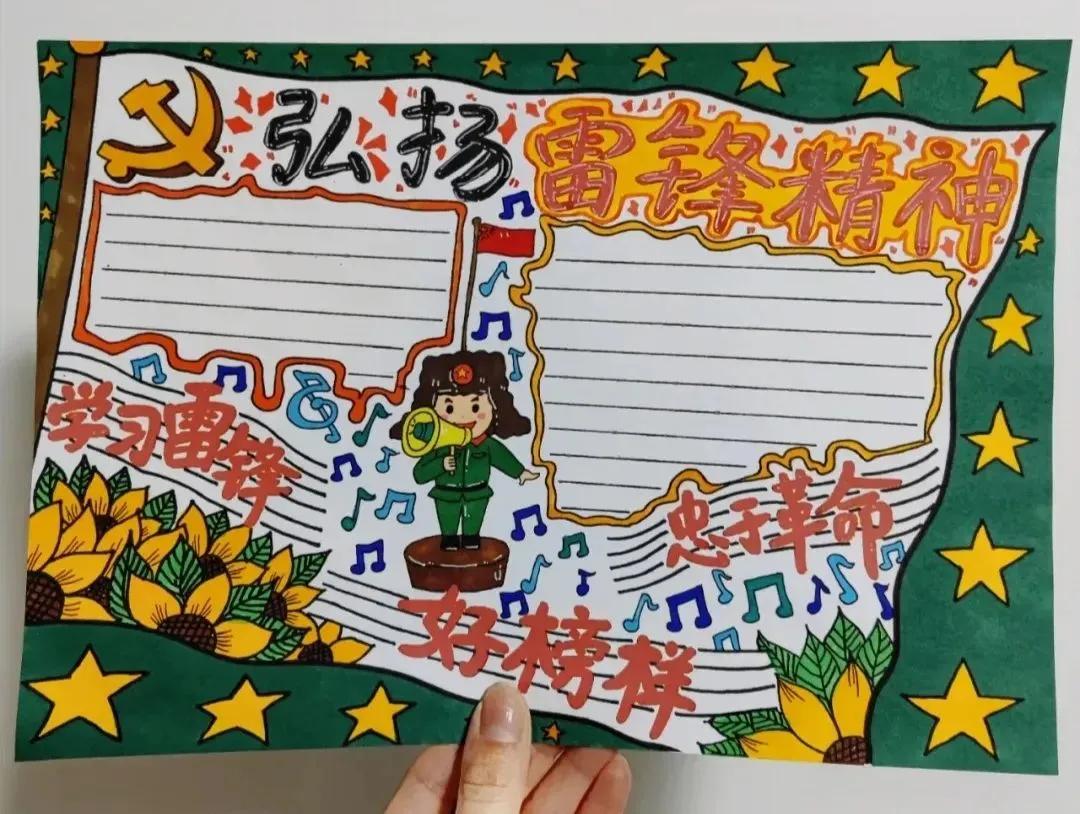 弘扬雷锋精神
学习雷锋
忠于革命
好榜样